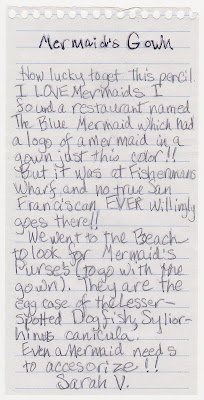 Mermaid's Gown
How lucky to get this pencil.
I LOVE Mermaids I
found a restaurant named
The Blue Mermaid which had
a logo of a mermaid in a
gown just this color!!
But it was at Fishermans
Wharf, and no true San
Franciscan EVER willingly
goes there!!
We went to the Beach
to look for Mermaid's
Purses (to go with the
gown). They are the
egg case of the Lesser-
Spotted Dogfish, Sylior-
hinus canicula.
Even a Mermaid needs
to accesorize!!
Sarah V.